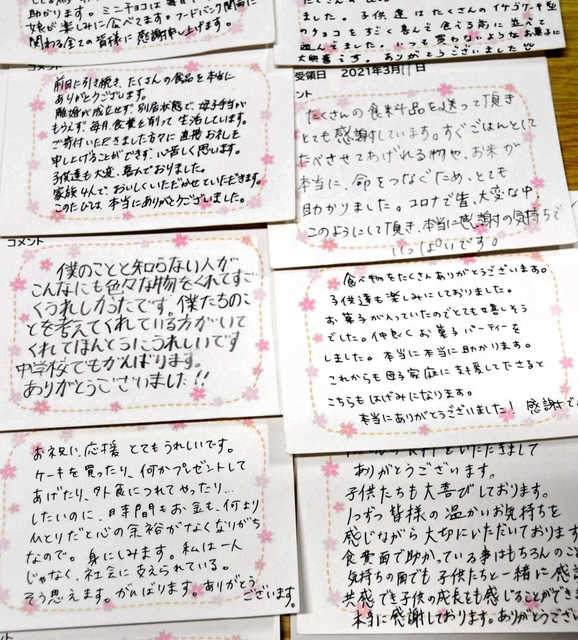 助かります。ミニチョコは毎日
娘が楽しみに食べてます。フードバンク関西に
関わる全ての皆様に感謝申し上げます。
ました。子供達はたくさんのイチゴケーキ型
のチョコをすごく喜んで食べる前に並べて
遊んでました。いつも買わないようなお菓子に
大興奮です。ありがとうございました
コメント
前回に引き続き、たくさんの食品を本当に
ありがとうございます。
離婚が成立せず、別居状態で、母子手当が
もらえず毎月、食費を削って生活しています。
ご寄付いただきました方々に直接お礼を
申し上げることができず、心苦しく思います。
子供達も大変、喜んでおりました。
家族4人で、おいしくいただかせていただきます。
このたびは、本当にありがとうございました。
受領日 2021年3月11日
ント
たくさんの食料品を送って頂き
とても感謝しています。すぐごはんとして
たべさせてあげれる物や、お米が
本当に、命をつなぐため、とても
助かりました。コロナで皆、大変な中、
このようにして頂き、本当に感謝の気持ちで
いっぱいです。
コメント
僕のことを知らない人が
こんなにも色々な物をくれてすご
くうれしかったです。僕たちのこ
とを考えてくれている方がいて
くれてほんとうにうれしいです
中学校でもがんばります。
ありがとうございました!!
食べ物をたくさんありがとうございます。
子供達も楽しみにしておりました。
お菓子が入っていたのでとても嬉しそう
でした。仲良くお菓子パーティーを
しました。本当に本当に助かります。
これからも母子家庭に支援して下さると
こちらもはげみになります。
本当にありがとうございました! 感謝で
お祝い、応援 とてもうれしいです。
ケーキを買ったり、何かプレゼントして
あげたり、外食につれてやったり…
したいのに、日々時間もお金も、何より
ひとりだと心の余裕がなくなりがち
なので。身にしみます。私は一人
じゃなく、社会に支えられている。
そう思えます。がんばります。ありがとう
ございます。
いただきまして
ありがとうございます。
子供たちも大喜びしております。
1つずつ皆様の温かいお気持ちを
感じながら 大切にいただいております
食費面で助かっている事はもちろんのこ
気持ちの面でも子供たちと一緒に感謝
共感でき子供の成長も感じることができま
本当に感謝しております。ありがとうござい